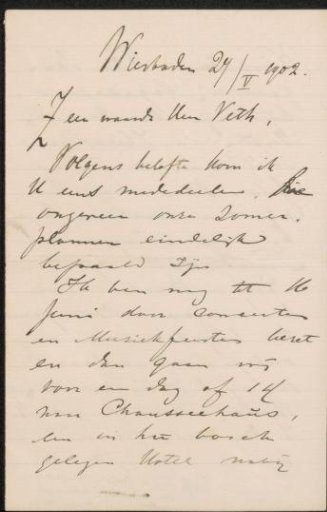 Wiesbaden 27/V 1902.
Zeer waarde Heer Veth,
Volgens belofte kom ik
U eens mededeelen,
ongeveer onze zomer-
plannen eindelijk
bepaald zijn
Ik ben nog tot 16
Juni door concerten
en Musiekfeesten bezet
en dan gaan wij
voor een dag of 14
naar Chausseehaus,
een in het bosch
gelegen Hotel nabij